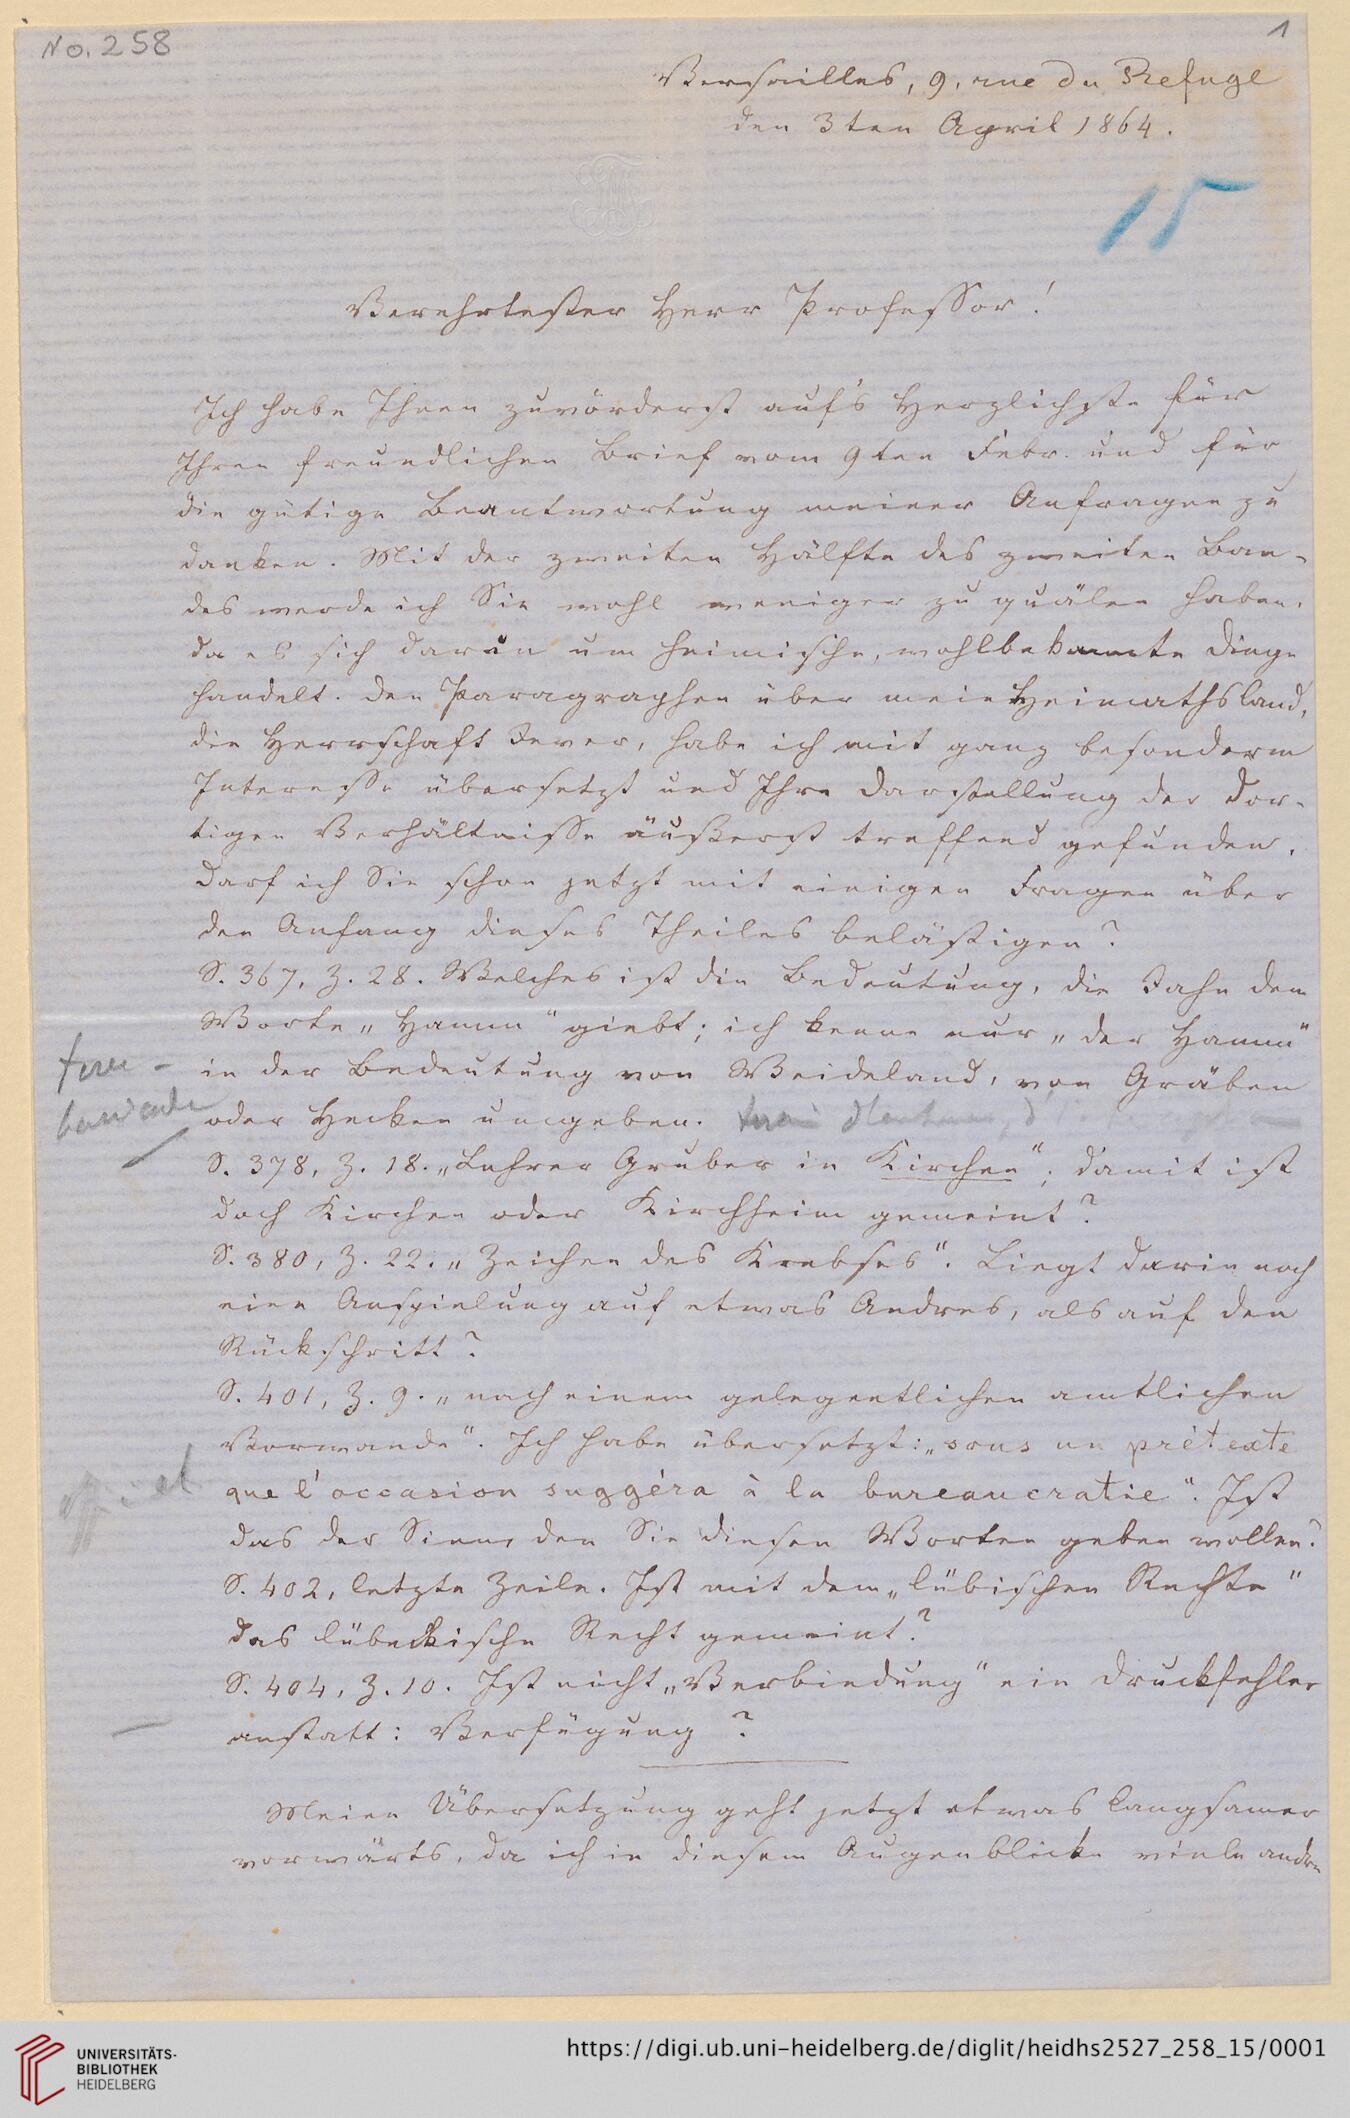 No. 258
1
Versailles, 9, rue du Refuge
den 3ten April 1864.
15
Verehrtester Herr Professor!
Ich habe Ihnen zuvörderst auf's Herzlichste für
Ihren freundlichen Brief vom 9ten Febr. und für
die gütige Beantwortung meiner Anfragen zu
danken. Mit der zweiten Hälfte des zweiten Ban-
des werde ich Sie wohl weniger zu quälen haben,
da es sich darin um heimische, wohlbekannte Dinge
handelt. Den Paragraphen über mein Heimathsland,
die Herrschaft Jever, habe ich mit ganz besonderm
Interesse übersetzt und Ihre Darstellung der dor-
tigen Verhältnisse äußerst treffend gefunden.
Darf ich Sie schon jetzt mit einigen Fragen über
den Anfang dieses Theiles belästigen?
S. 367, Z. 28. Welches ist die Bedeutung, die Jahn dem
Worte „Hamm" giebt; ich kenne nur „der Hamm"
in der Bedeutung von Weideland, von Gräben
oder Hecken umgeben.
S. 378, Z. 18. „Lehrer Gruber in Kirchen"; damit ist
doch Kirchen oder Kirchheim gemeint?
S. 380, Z. 22. „Zeichen des Krebses". Liegt darin noch
eine Anspielung auf etwas Andres, als auf den
Rückschritt?
S. 401, Z. 9. „nach einem gelegentlichen amtlichen
Vorwande". Ich habe übersetzt: „sous un prétexte
que l'occasion suggéra à la bureaucratie". Ist
das der Sinn, den Sie diesen Worten geben wollen?
S. 402, letzte Zeile. Ist mit dem „lübischen Rechte"
das lübeckische Recht gemeint?
S. 404, Z. 10. Ist nicht „Verbindung" ein Druckfehler
anstatt: Verfügung?
Meine Übersetzung geht jetzt etwas langsamer
vorwärts, da ich in diesem Augenblicke viele andre
UNIVERSITÄTS-
BIBLIOTHEK
HEIDELBERG
https://digi.ub.uni-heidelberg.de/diglit/heidhs2527_258_15/0001